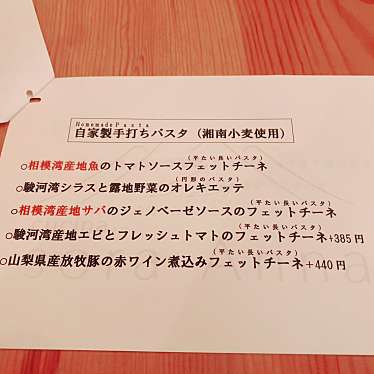 Homemade Pasta
自家製手打ちパスタ（湘南小麦使用）
(平たい長いパスタ)
○相模湾産地魚のトマトソースフェットチーネ
(円形のパスタ)
○駿河湾シラスと露地野菜のオレキエッテ
(平たい長いパスタ)
○相模湾産地サバのジェノベーゼソースのフェットチーネ
(平たい長いパスタ)
○駿河湾産地エビとフレッシュトマトのフェットチーネ+385円
(平たい長いパスタ)
○山梨県産放牧豚の赤ワイン煮込みフェットチーネ+440円